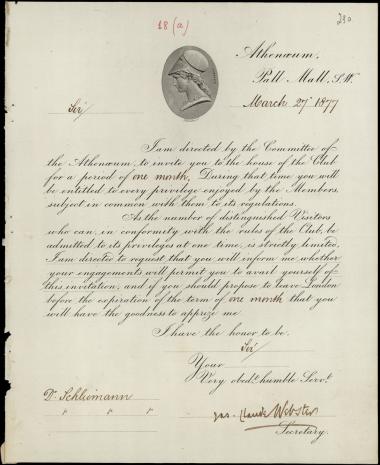 18 (a)
230.
Athenæum,
Pall Mall, S.W.
March 27 1877
Sir/
I am directed by the Committee of
the Athenæum, to invite you to the house of the Club
for a period of one month. During that time you will
be entitled to every privilege enjoyed by the Members,
subject in common with them to its regulations.
As the number of distinguished Visitors
who can, in conformity with the rules of the Club, be
admitted to its privileges at one time, is strictly limited,
I am directed to request that you will inform me whether
your engagements will permit you to avail yourself of
this invitation, and if you should propose to leave London
before the expiration of the term of one month that you
will have the goodness to apprize me
I have the honor to be,
Sir/
Your
Very obedt. humble Servt.
Dr. Schliemann
Jas. Claude Webster
Secretary.